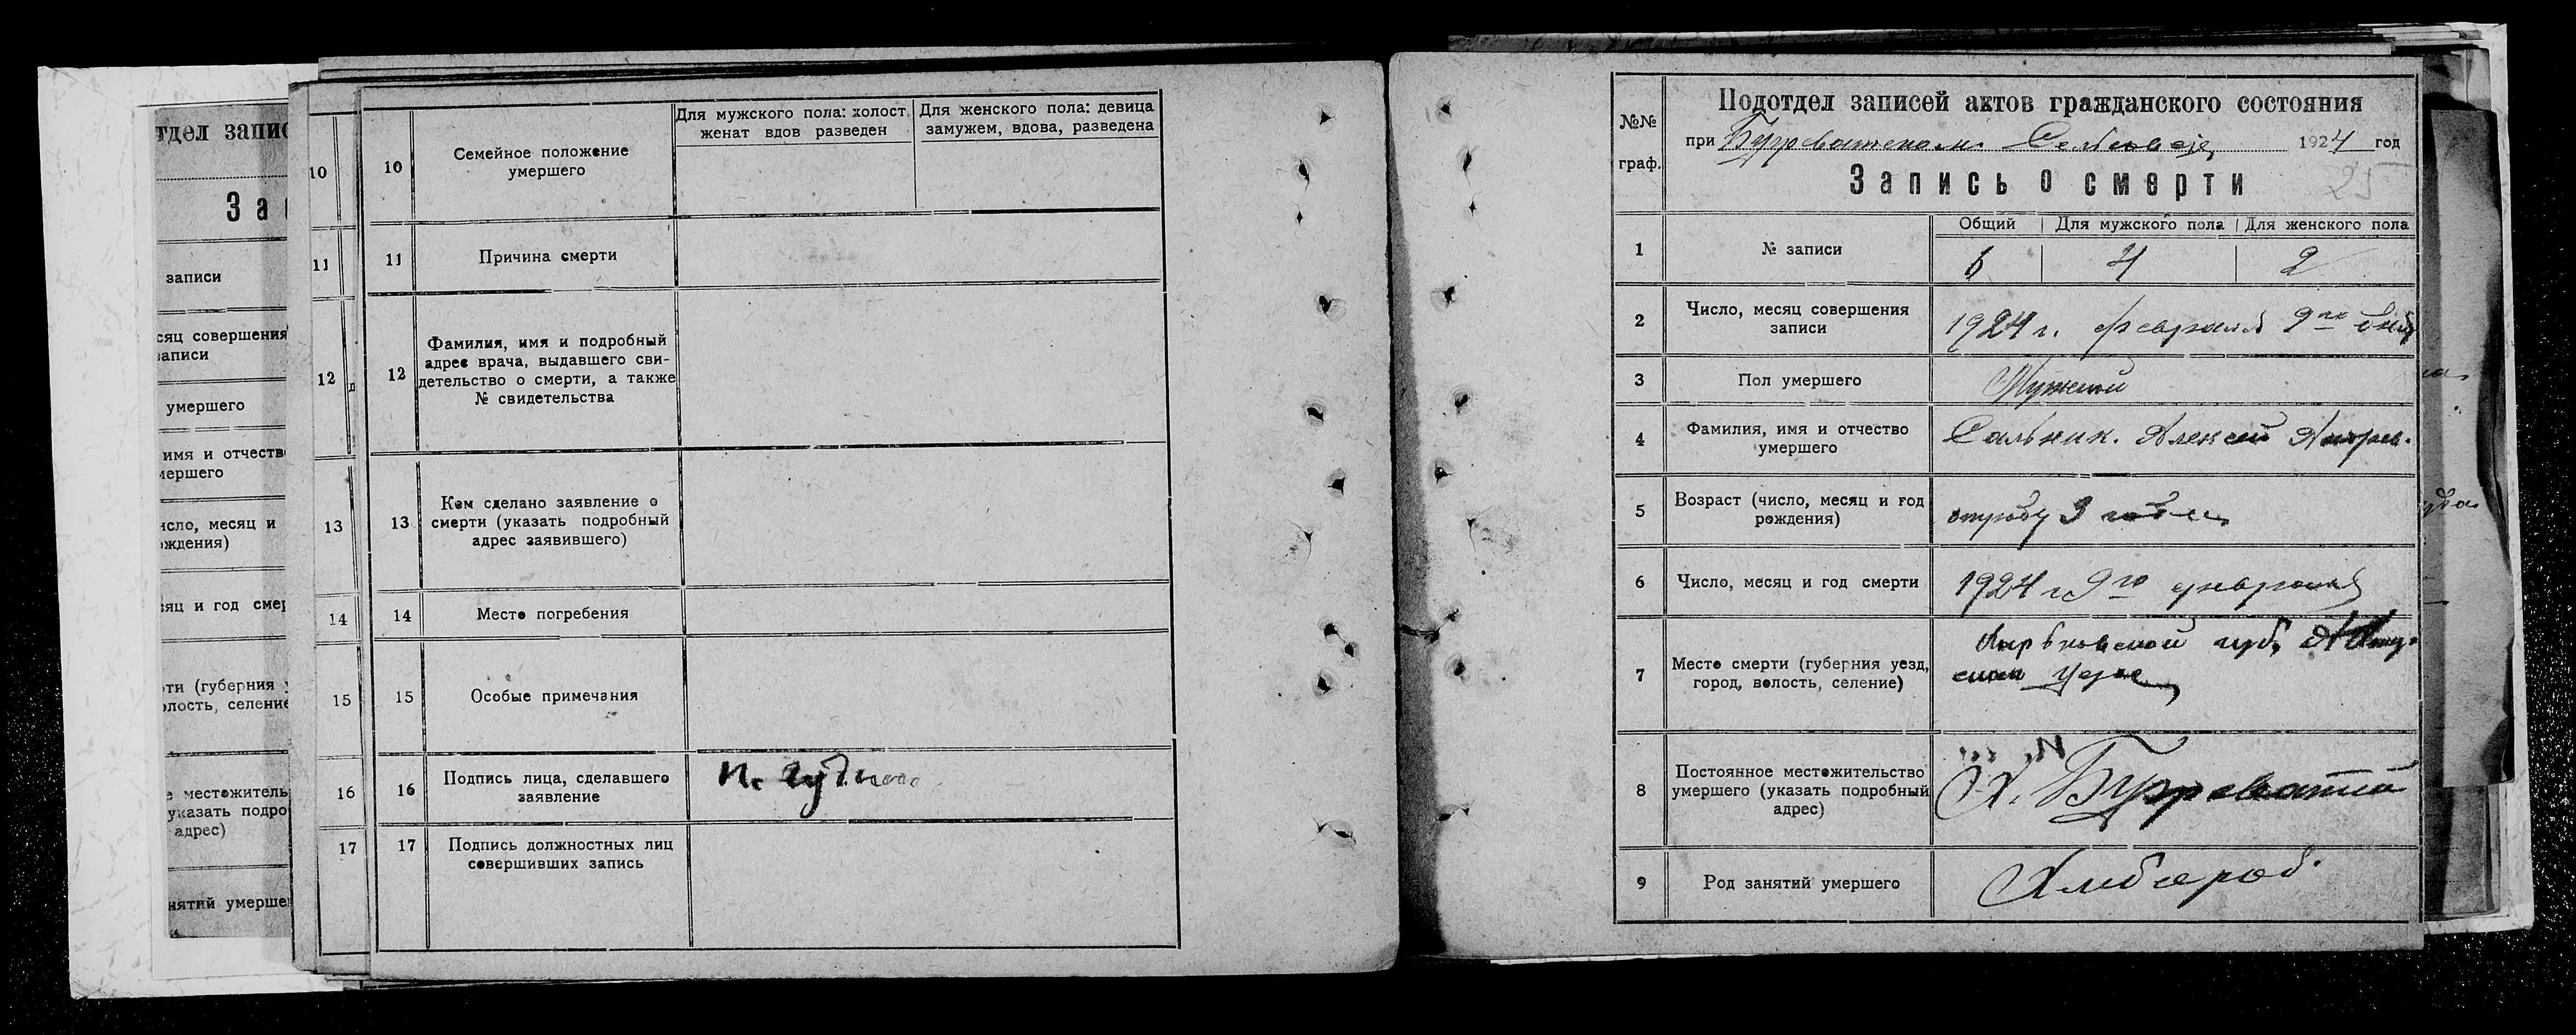 тдел запис
За
записи
сяц совершения
записи
умершего
имя и отчеств
мершего
исло, месяц и
ождения)
яц и год смер
ти (губерния у
олость, селение
местожитель
указать подро
адрес)
нятий умерше
10
11
12
13
14
15
16
17
10
Семейное положение
умершего
Для мужского пола: холост.
женат вдов разведен
Для женского пола: девица
замужем, вдова, разведена
11
Причина смерти
12
Фамилия, имя и подробный
адрес врача, выдавшего сви-
детельство о смерти, а также
№ свидетельства
13
Кем сделано заявление о
смерти (указать подробный
адрес заявившего)
14
Место погребения
15
Особые примечания
16
Подпись лица, сделавшего
заявление
17
Подпись должностных лиц
совершивших запись
№№
граф.
Подотдел записей актов гражданского состояния
при Бугреватском Сельсовете 1924 год
Запись о смерти
25
1
№ записи
Общий
Для мужского пола
Для женского пола
6
4
2
2
Число, месяц совершения
записи
1924 г. февраля 9го дня
3
Пол умершего
Мужской
4
Фамилия, имя и отчество
умершего
Сальник. Алексей
5
Возраст (число, месяц и год
рождения)
отроду 3 года
6
Число, месяц и год смерти
1924 г 9го февраля
7
Место смерти (губерния уезд,
город, волость, селение)
Харьковской губ.
уезде
8
Постоянное местожительство
умершего (указать подробный
адрес)
Х. Бугреватый
9
Род занятий умершего
Хлебороб.